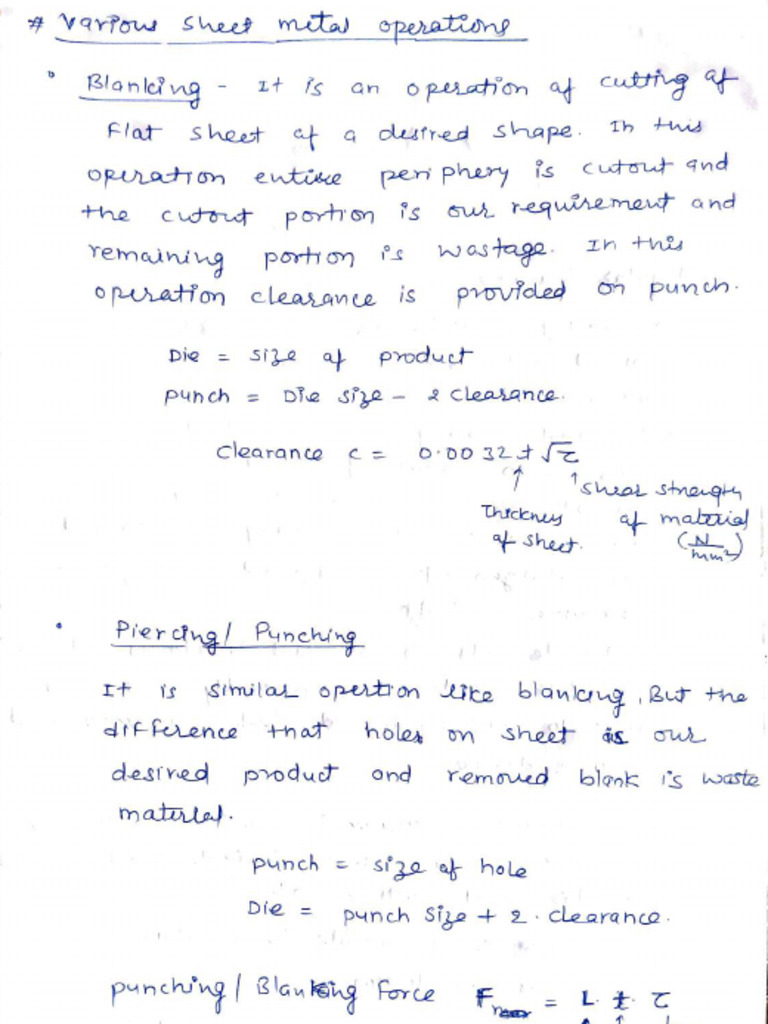 # Various sheet metal operations
• Blanking - It is an operation of cutting of
flat sheet of a desired shape. In this
operation entire periphery is cutout and
the cutout portion is our requirement and
remaining portion is wastage. In this
operation clearance is provided on punch.
Die = size of product
punch = Die size - 2 clearance.
Clearance c = 0.0032 t √τ
↑ ↑ shear strength
Thickness of material
of sheet. (N/mm²)
• Piercing/ Punching
It is similar opertion like blanking, But the
difference that holes on sheet is our
desired product and removed blank is waste
material.
punch = size of hole
Die = punch size + 2. clearance.
punching/ Blanking Force F = L. t. τ